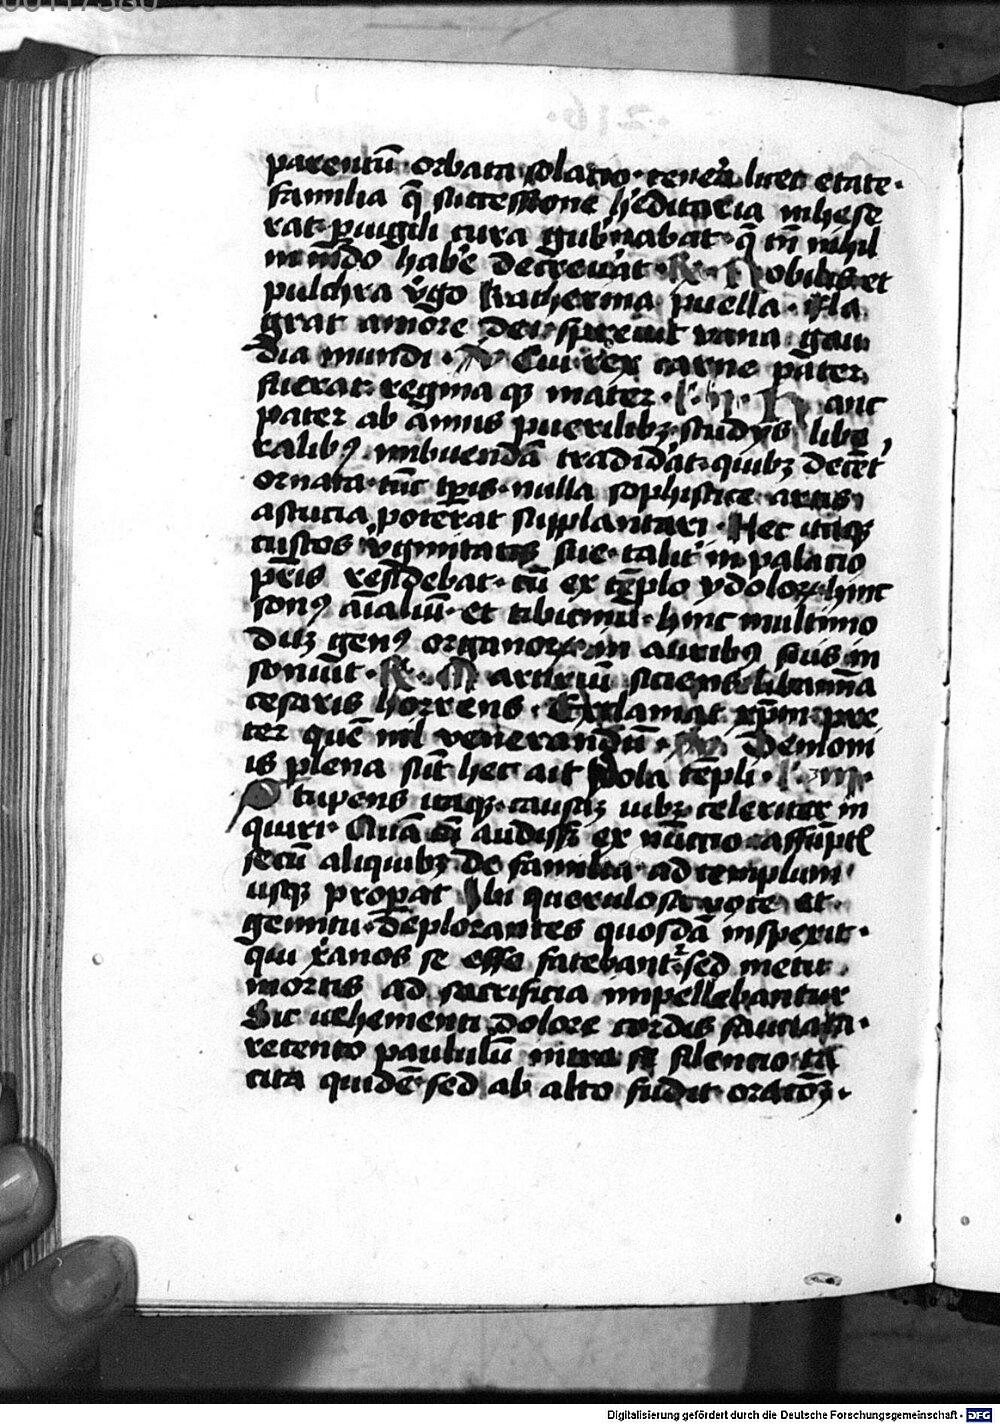 parentū orbata solatio · tenera licet etate ·
familia q̄ successione h̓editaria inhese
rat · p̱uigili cura gub̓nabat · q̄ tn̄ nihil
in mūdo hab̓e decreu̓at · R̓ · Nobilis et
pulchra v̓go katherina puella · Fla
grat amore dei · spreuit vana gau
dia mundi · V̓ Cui rex carne pater
fuerat · regina q̨ mater · l · ij · Hanc
pater ab annis puerilibꝫ · studijs libe
ralibꝰ imbuendā tradid̓at · quibꝫ decēt̓
ornata · tūc tp̄is · nulla sophistice artis
astucia poterat supplantari · Hec itaqꝫ
custos v̓ginitatis sue · talit̓ in palacio
pr̄is residebat · cū ex tēplo ydoloꝝ · hinc
sonꝰ aīaliū · et tibicinū · hinc multimo
dūꝫ genꝰ organoꝝ · in auribꝰ suis in
sonuit · R̓ · Martiriū siciens libamīa
cesaris horrens · Exclamat xp̄m pre
ter quē nil venerandū · V̓ Demoni
is plena sūt hec ait ydola tēpli · l · iij ·
Stupens itaqꝫ · causaꝫ iubꝫ celeriter in
quiri · Quā cū audissꝫ ex nūctio · assūptꝭ
secū aliquibꝫ de familia · ad templum
usqꝫ prop̱at Ibi querulosa uoce et
gemitu · deplorantes quosdā inspexit ·
qui x̓anos se esse fatebant̓ · sed metu
mortis ad sacrificia impellebantur
Sic uehementi dolore cordis sauciata ·
retento paululū intra se silencio · ta
cita quidē · sed ab alto fudit oratōꝫ ·
Digitalisierung gefördert durch die Deutsche Forschungsgemeinschaft · DFG